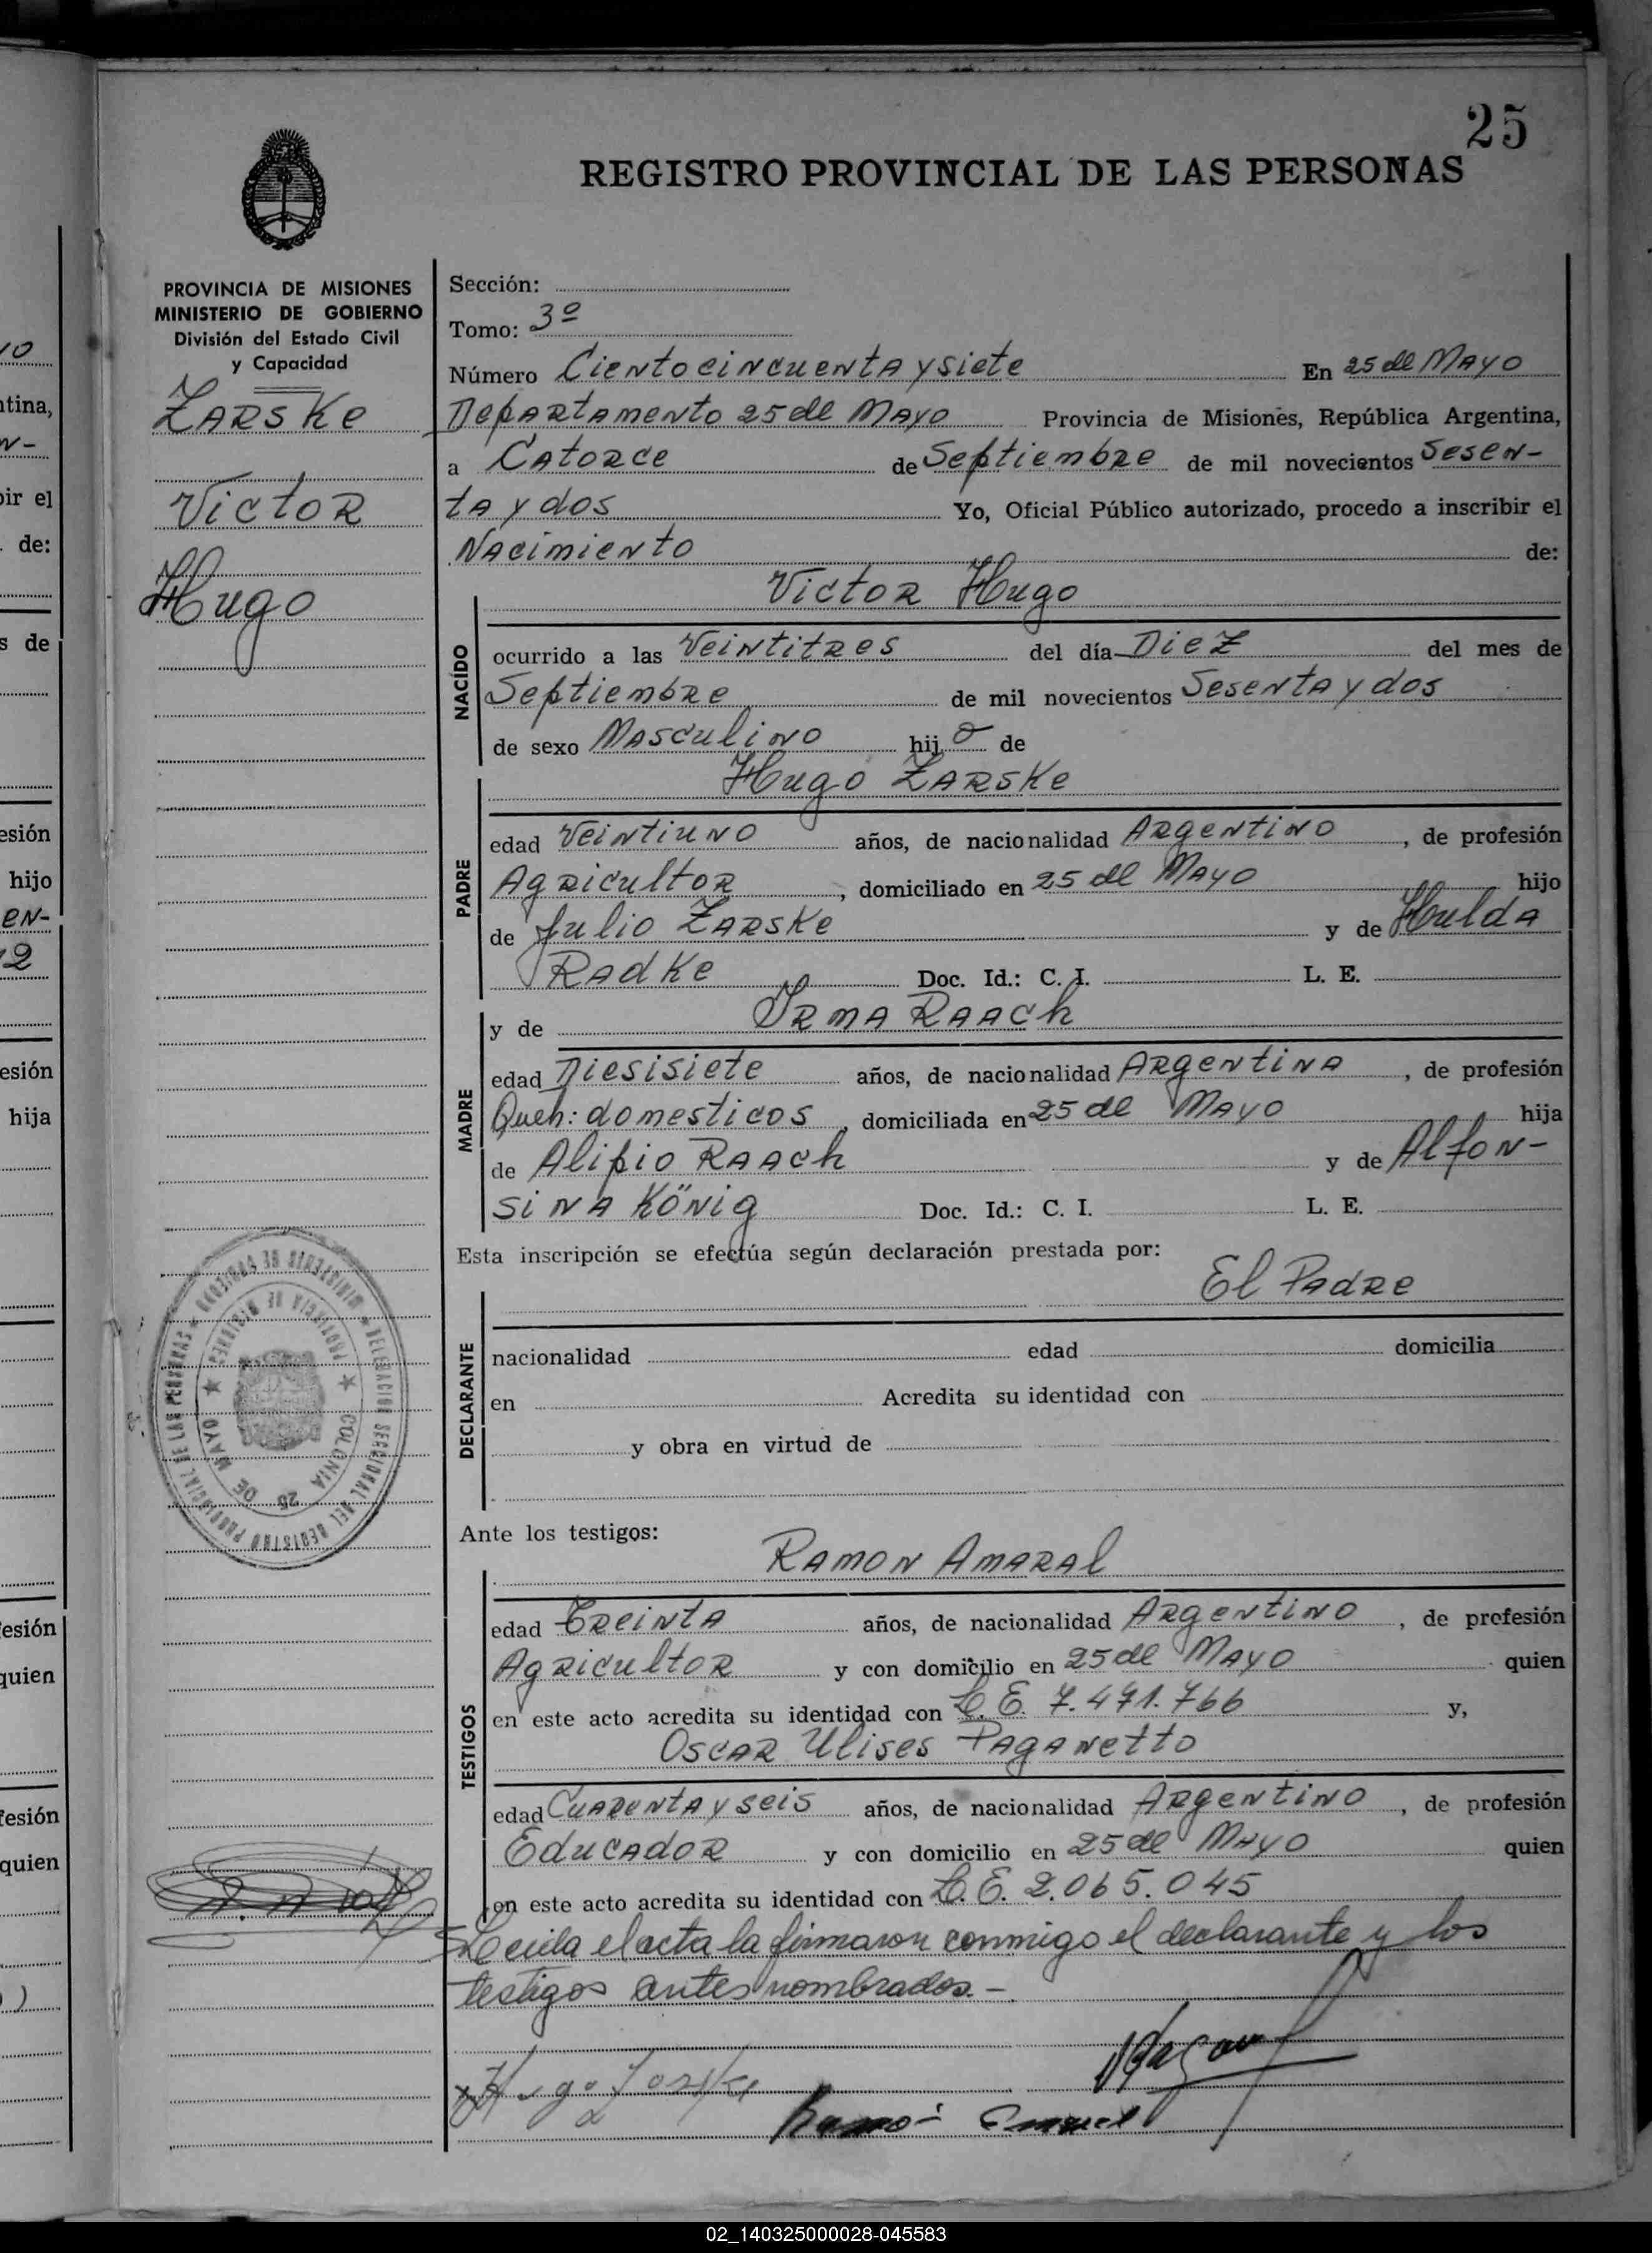 25
REGISTRO PROVINCIAL DE LAS PERSONAS
PROVINCIA DE MISIONES
MINISTERIO DE GOBIERNO
División del Estado Civil
y Capacidad
Zarske
Victor
Hugo
Sección:
Tomo: 3º
Número Ciento cincuenta y siete En 25 de Mayo
Departamento 25 de Mayo Provincia de Misiones, República Argentina,
a Catorce de Septiembre de mil novecientos Sesen-
ta y dos Yo, Oficial Público autorizado, procedo a inscribir el
Nacimiento de:
Victor Hugo
NACIDO
ocurrido a las Veintitres del día Diez del mes de
Septiembre de mil novecientos Sesenta y dos
de sexo Masculino hijo de
Hugo Zarske
PADRE
edad Veintiuno años, de nacionalidad Argentino, de profesión
Agricultor, domiciliado en 25 de Mayo hijo
de Julio Zarske y de Hulda
Radke Doc. Id.: C. I. L. E.
y de Irma Raach
MADRE
edad Diesisiete años, de nacionalidad Argentina, de profesión
Queh: domesticos, domiciliada en 25 de Mayo hija
de Alipio Raach y de Alfon-
sina König Doc. Id.: C. I. L. E.
Esta inscripción se efectúa según declaración prestada por:
El Padre
DECLARANTE
nacionalidad edad domicilia
en Acredita su identidad con
y obra en virtud de
Ante los testigos:
Ramon Amaral
TESTIGOS
edad Treinta años, de nacionalidad Argentino, de profesión
Agricultor y con domicilio en 25 de Mayo quien
en este acto acredita su identidad con L. E. 7.471.766 y,
Oscar Ulises Paganetto
edad Cuarenta y seis años, de nacionalidad Argentino, de profesión
Educador y con domicilio en 25 de Mayo quien
en este acto acredita su identidad con L. E. 2.065.045
Leida el acta la firmaron conmigo el declarante y los
testigos antes nombrados.-
Hugo Zarske
MINISTERIO DE GOBIERNO ★ DELEGACION SECCIONAL DEL REGISTRO PROVINCIAL DE LAS PERSONAS
PROVINCIA DE MISIONES ★ COLONIA 25 DE MAYO ★
02_140325000028-045583